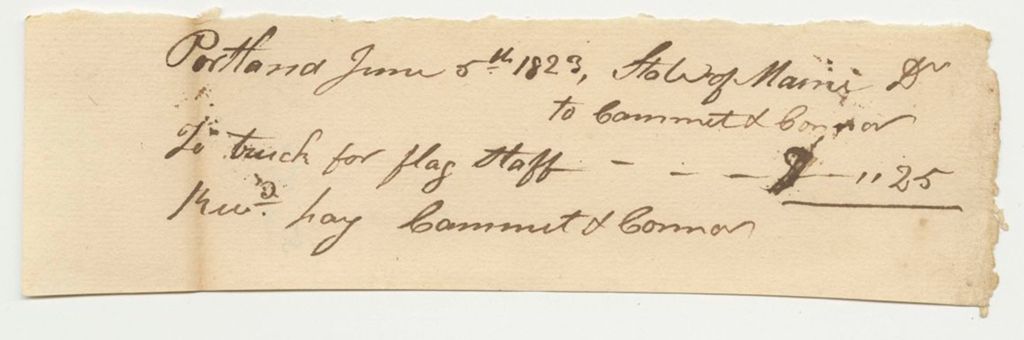 Portland June 5th 1823, State of Maine Dr
to Cammet & Connor
To truck for flag staff - - - $ " 25
Recd. pay Cammet & Connor